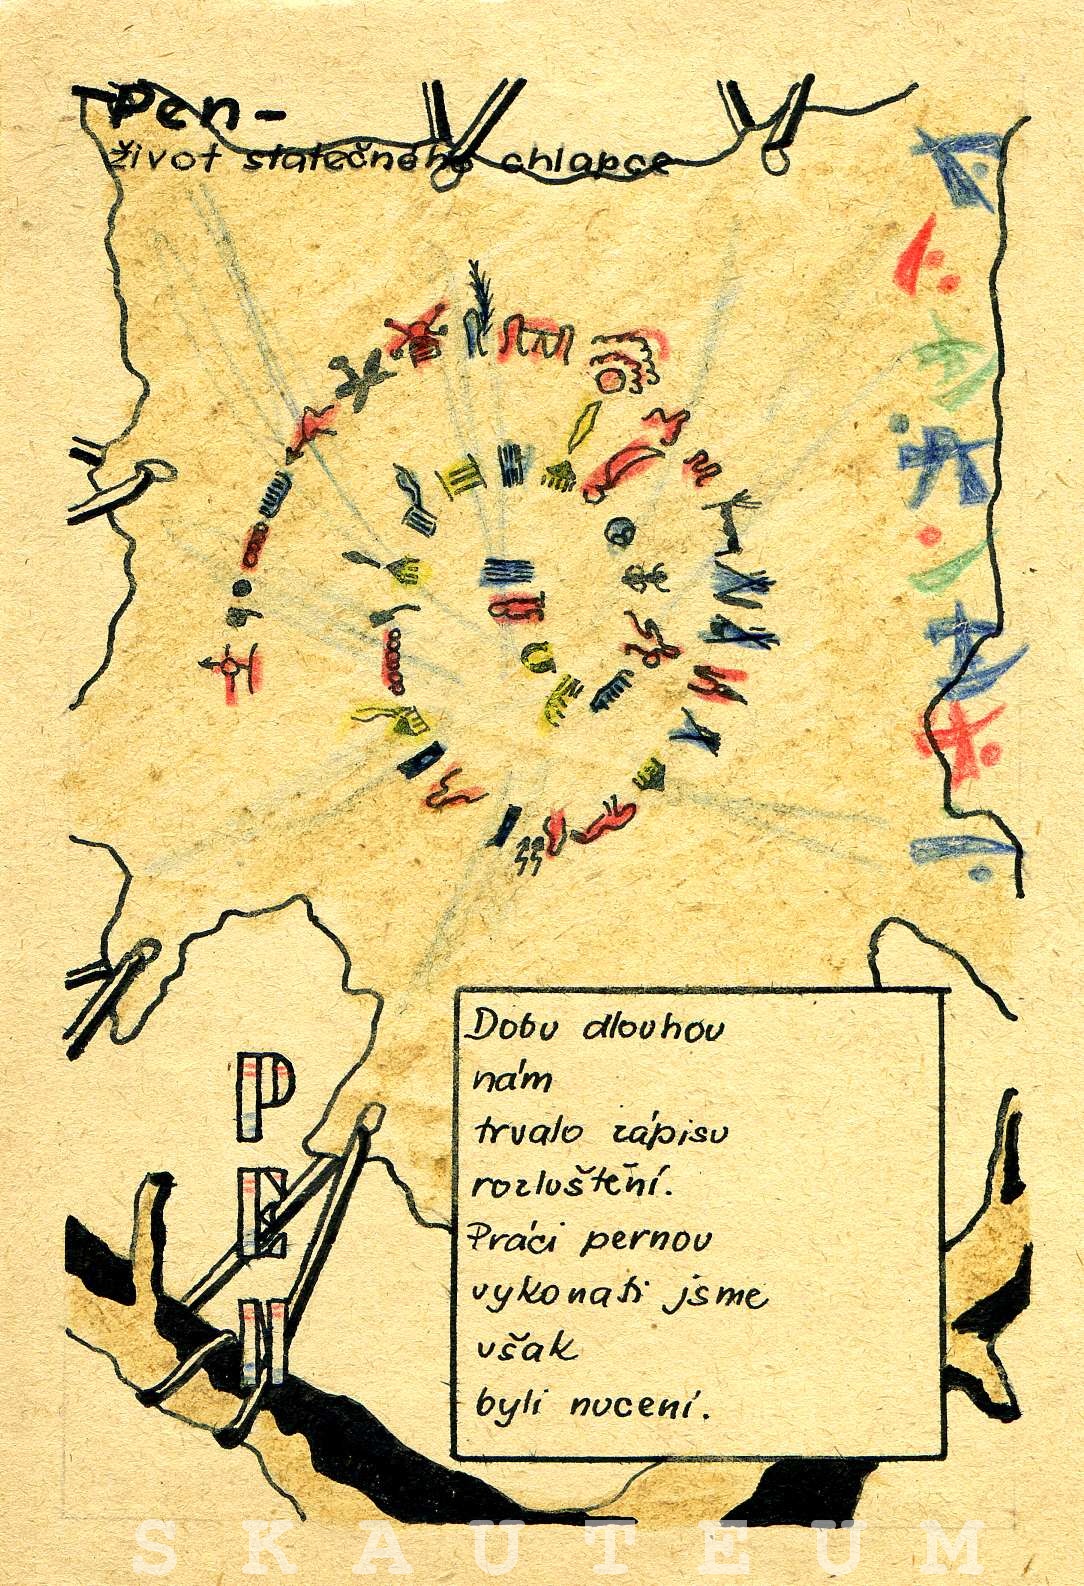 Pen-
život statečného chlapce
PEN
Dobu dlouhou
nám
trvalo zápisu
rozluštění.
Práci pernou
vykonati jsme
však
byli nuceni.
SKAUTEUM